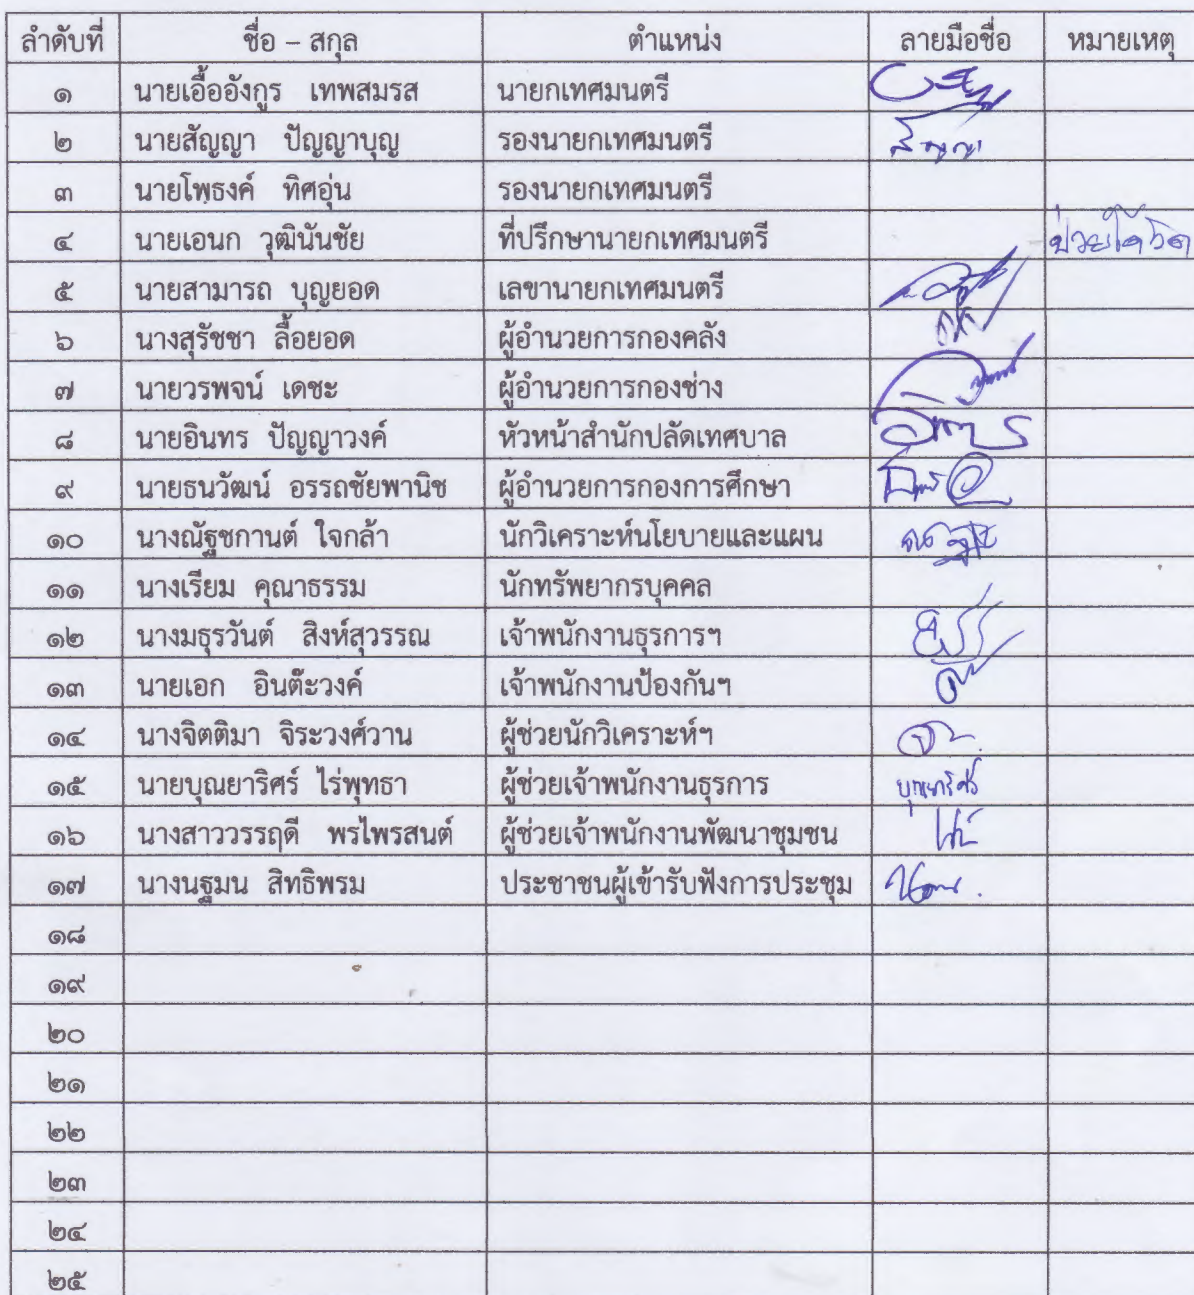 ลำดับที่ ชื่อ – สกุล ตำแหน่ง ลายมือชื่อ หมายเหตุ
๑ นายเอื้ออังกูร เทพสมรส นายกเทศมนตรี
๒ นายสัญญา ปัญญาบุญ รองนายกเทศมนตรี สัญญา
๓ นายโพธงค์ ทิศอุ่น รองนายกเทศมนตรี
๔ นายเอนก วุฒินันชัย ที่ปรึกษานายกเทศมนตรี ป่วยโควิด
๕ นายสามารถ บุญยอด เลขานายกเทศมนตรี
๖ นางสุรัชชา ลื้อยอด ผู้อำนวยการกองคลัง
๗ นายวรพจน์ เดชะ ผู้อำนวยการกองช่าง
๘ นายอินทร ปัญญาวงค์ หัวหน้าสำนักปลัดเทศบาล
๙ นายธนวัฒน์ อรรถชัยพานิช ผู้อำนวยการกองการศึกษา
๑๐ นางณัฐชกานต์ ใจกล้า นักวิเคราะห์นโยบายและแผน
๑๑ นางเรียม คุณาธรรม นักทรัพยากรบุคคล
๑๒ นางมธุรวันต์ สิงห์สุวรรณ เจ้าพนักงานธุรการฯ
๑๓ นายเอก อินต๊ะวงค์ เจ้าพนักงานป้องกันฯ
๑๔ นางจิตติมา จิระวงศ์วาน ผู้ช่วยนักวิเคราะห์ฯ
๑๕ นายบุณยาริศร์ ไร่พุทธา ผู้ช่วยเจ้าพนักงานธุรการ บุณยาริศร์
๑๖ นางสาววรรฤดี พรไพรสนต์ ผู้ช่วยเจ้าพนักงานพัฒนาชุมชน
๑๗ นางนฐมน สิทธิพรม ประชาชนผู้เข้ารับฟังการประชุม
๑๘
๑๙
๒๐
๒๑
๒๒
๒๓
๒๔
๒๕